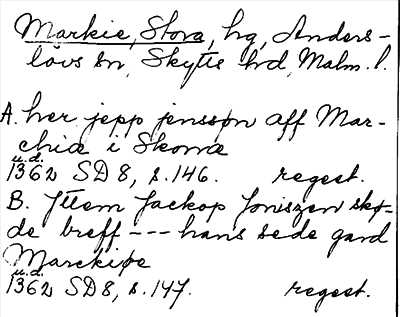 Markie, Stora, hg, Anders-
lövs sn, Skytts hd, Malm. l.
A. her jepp jenssøn aff Mar-
chiæ i Skonæ
u.d.
1362 SD 8, s. 146. regest.
B. Jtem Jackop Joniszen skø-
de breff --- hans sede gard
Marckiøe
u.d.
1362 SD 8, s. 147. regest.